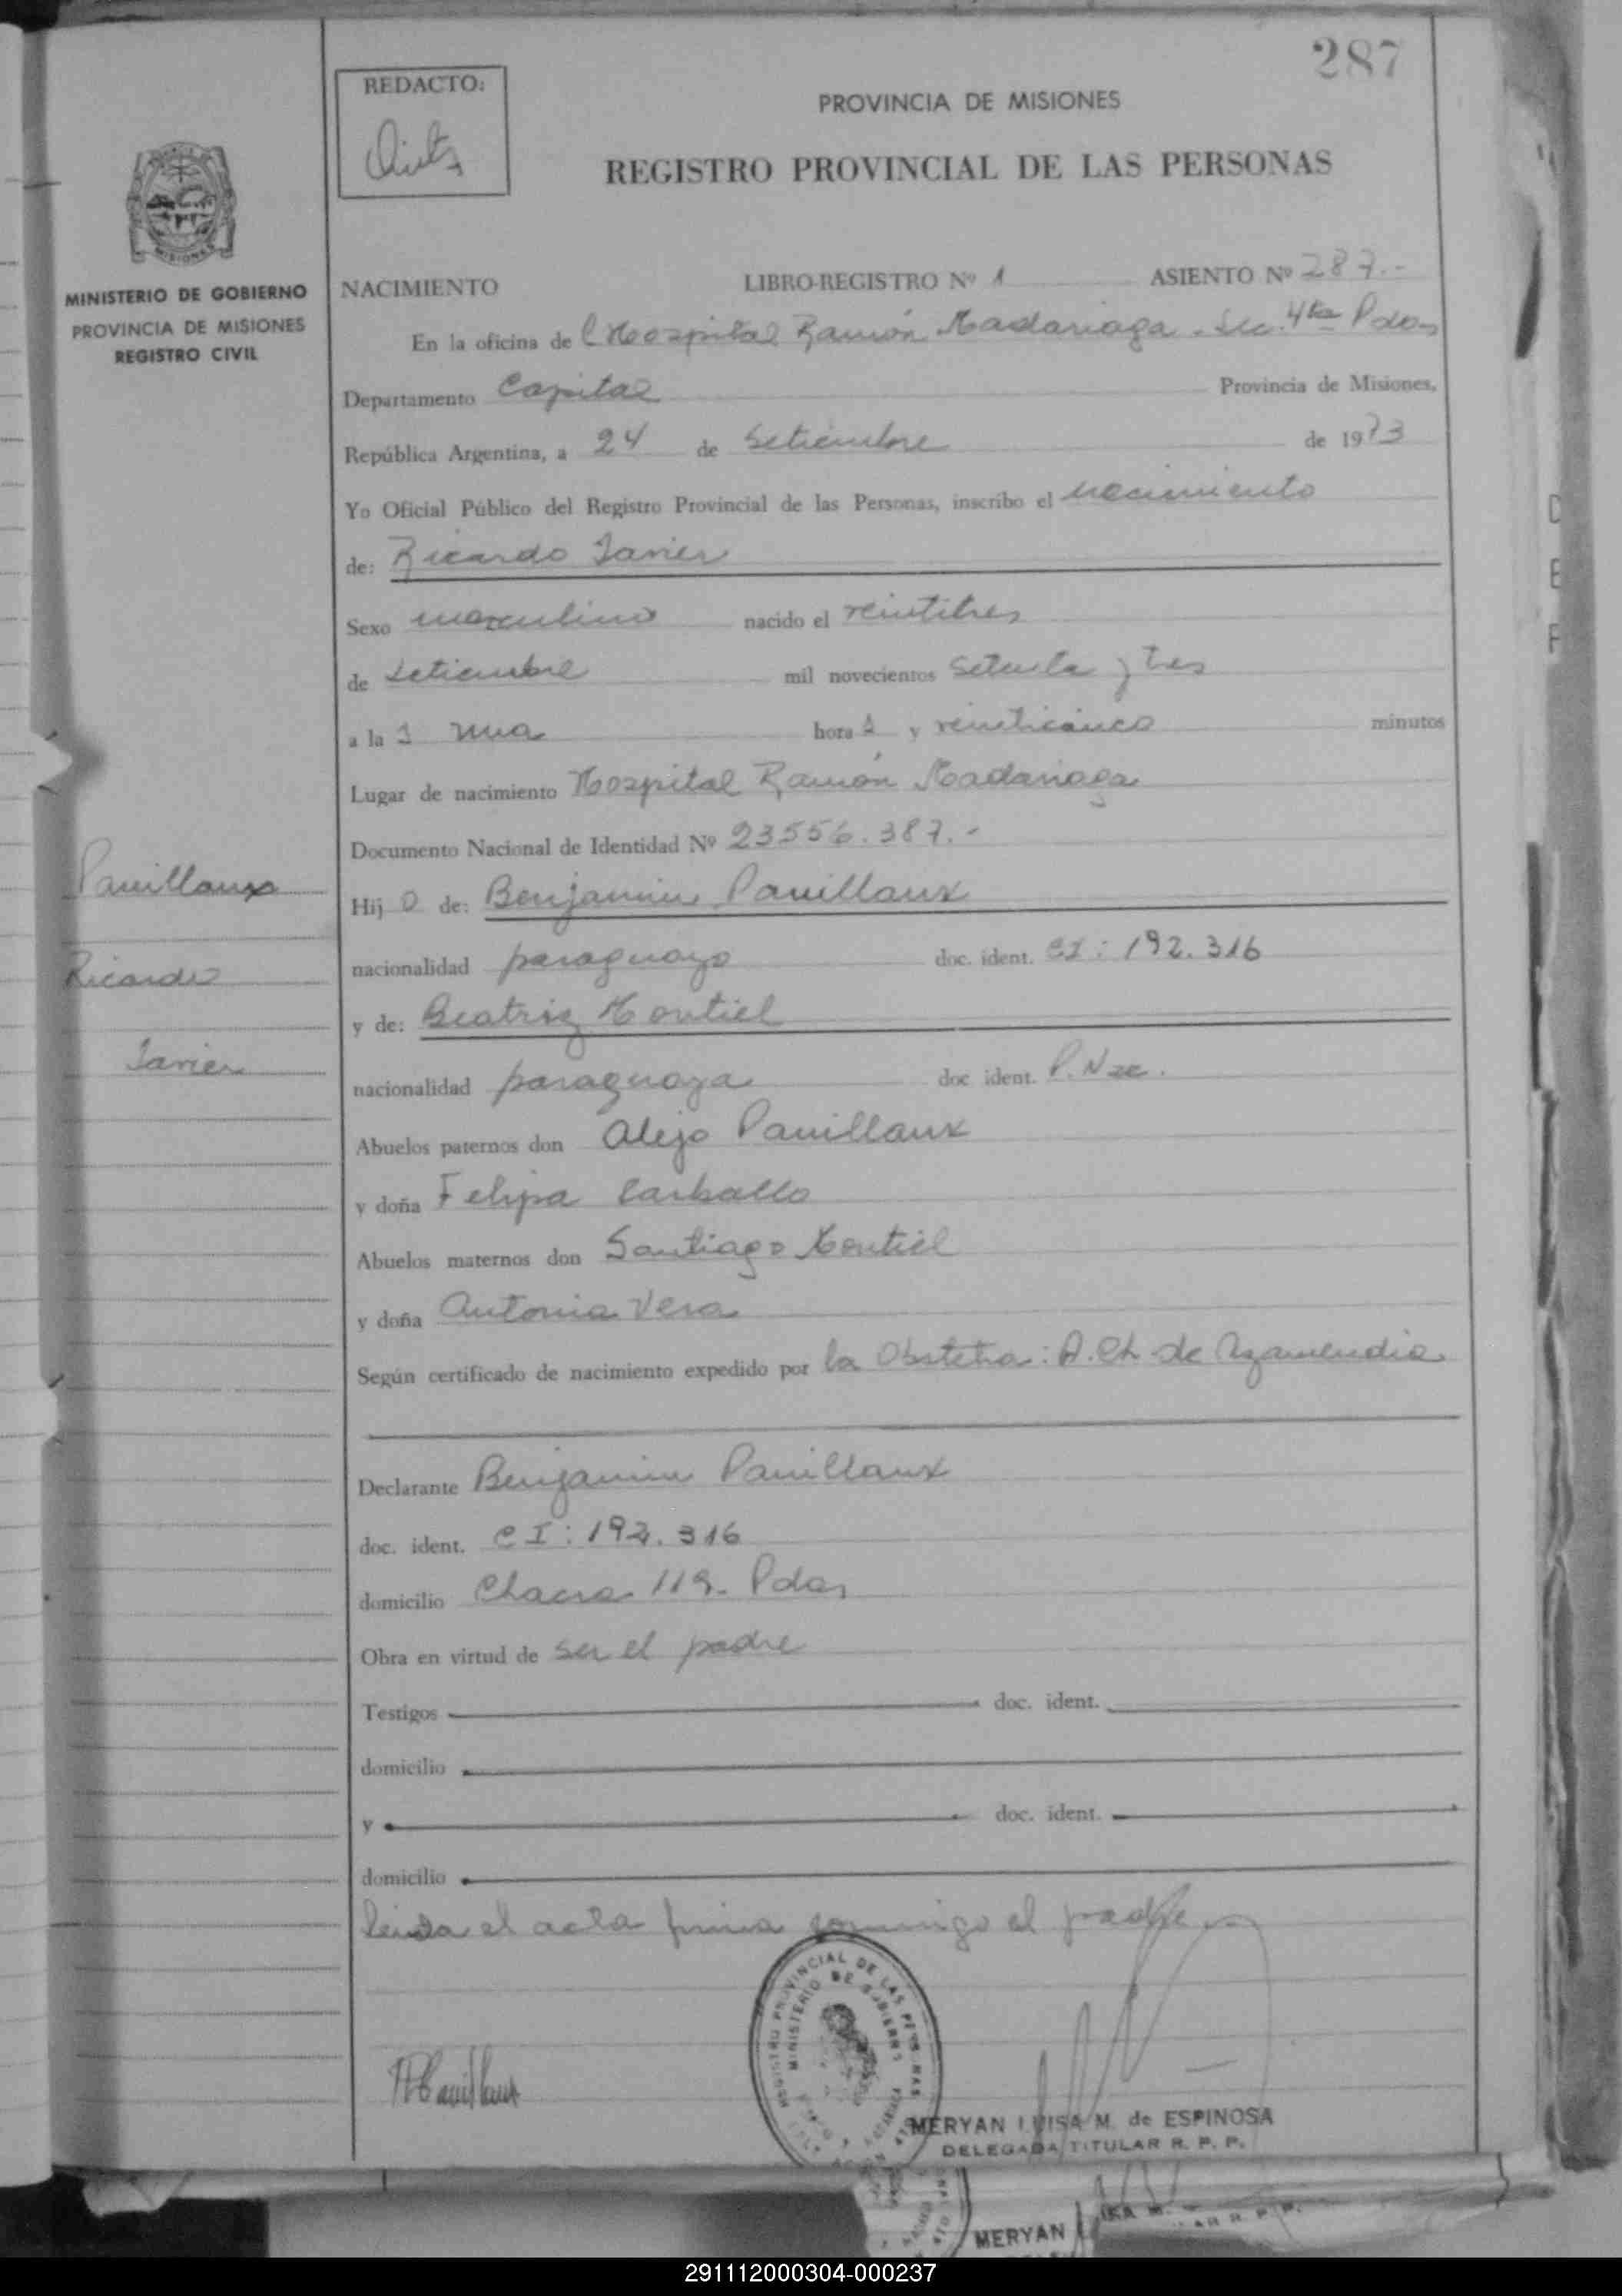 287
REDACTO:
PROVINCIA DE MISIONES
REGISTRO PROVINCIAL DE LAS PERSONAS
MISIONES
MINISTERIO DE GOBIERNO
PROVINCIA DE MISIONES
REGISTRO CIVIL
NACIMIENTO LIBRO-REGISTRO Nº 1 ASIENTO Nº 287.-
En la oficina de Hospital Ramón Madariaga - Sec. 4ta Pdas
Departamento Capital Provincia de Misiones,
República Argentina, a 24 de Setiembre de 1973
Yo Oficial Público del Registro Provincial de las Personas, inscribo el nacimiento
de: Ricardo Javier
Sexo masculino nacido el veintitres
de setiembre mil novecientos setenta y tres
a la 1 una hora 1 y veinticinco minutos
Lugar de nacimiento Hospital Ramón Madariaga
Documento Nacional de Identidad Nº 23556.387.-
Hij o de: Benjamin Pauillaux
nacionalidad paraguayo doc. ident. CI: 192.316
y de: Beatriz Montiel
nacionalidad paraguaya doc ident. P. Nac.
Abuelos paternos don Alejo Pauillaux
y doña Felipa Carballo
Abuelos maternos don Santiago Montiel
y doña Antonia Vera
Según certificado de nacimiento expedido por la Obstetra: A. Ch de Azamendia
Pauillaux
Ricardo
Javier
Declarante Benjamin Pauillaux
doc. ident. CI: 192.316
domicilio Chacra 119- Pdas
Obra en virtud de ser el padre
Testigos doc. ident.
domicilio
y doc. ident.
domicilio
Leida el acta firma conmigo el padre
REGISTRO PROVINCIAL DE LAS PERSONAS
MINISTERIO DE GOBIERNO
MERYAN LUISA M. de ESPINOSA
DELEGADA TITULAR R. P. P.
MERYAN
291112000304-000237